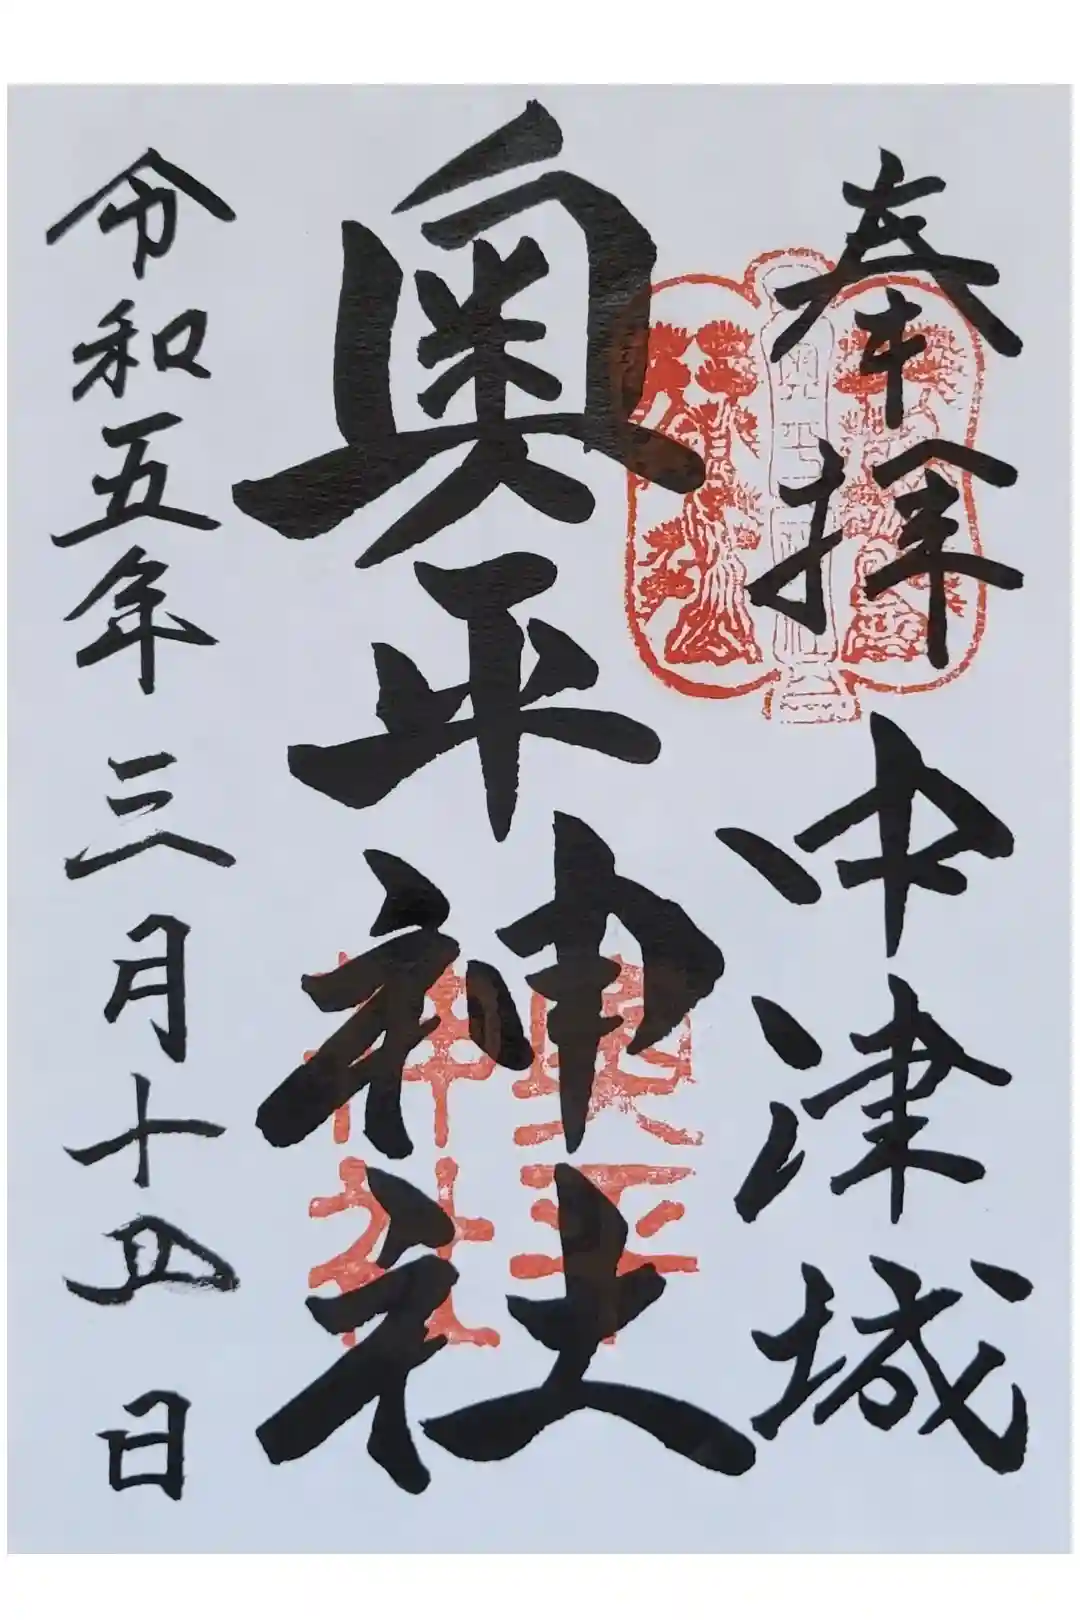 奉拝 中津城
奥平神社
令和五年 三月十四日
奥平
神社